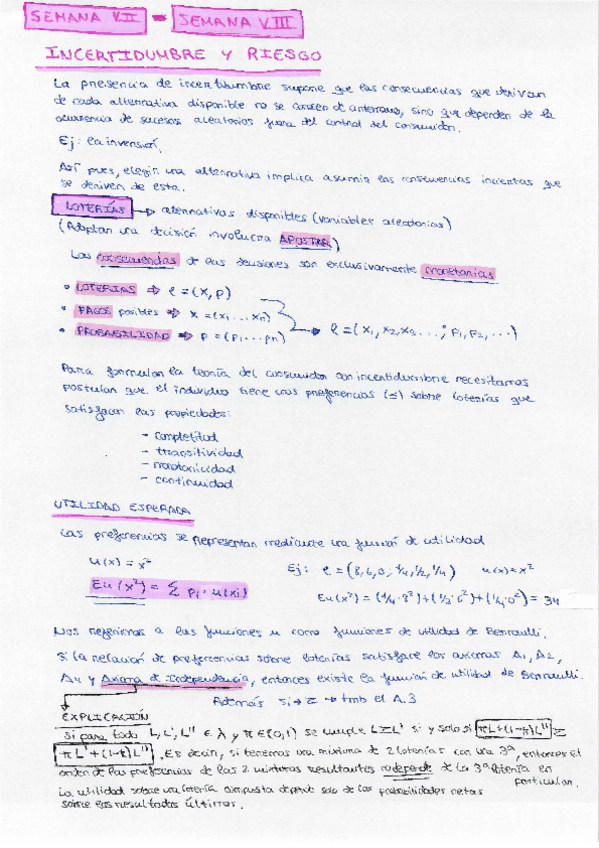 SEMANA VII - SEMANA VIII
INCERTIDUMBRE Y RIESGO
La presencia de incertidumbre supone que las consecuencias que derivan
de cada alternativa disponible no se conocen de antemano, sino que dependen de la
ocurrencia de sucesos aleatorios fuera del control del consumidor.
Ej: la inversión.
Así pues, elegir una alternativa implica asumir las consecuencias inciertas que
se deriven de esta.
LOTERÍAS → alternativas disponibles (variables aleatorias)
(Adoptar una decisión involucra APOSTAR)
Las consecuencias de las decisiones son exclusivamente monetarias
• LOTERIAS ⇒ l = (x, p)
• PAGOS posibles ⇒ x = (x1 ... xn)
• PROBABILIDAD ⇒ p = (p1 ... pn)
l = (x1, x2, x3 ... ; p1, p2, ...)
Para formular la teoría del consumidor con incertidumbre necesitamos
postular que el individuo tiene unas preferencias (≤) sobre loterías que
satisfacen las propiedades:
- completitud
- transitividad
- monotonicidad
- continuidad
UTILIDAD ESPERADA
Las preferencias se representan mediante una función de utilidad
u(x) = x²
Eu(x²) = Σ pi · u(xi)
Ej: l = (8, 6, 0, 1/4, 1/2, 1/4) u(x) = x²
Eu(x²) = (1/4 · 8²) + (1/2 · 6²) + (1/4 · 0²) = 34
Nos referimos a las funciones u como funciones de utilidad de Bernoulli.
Si la relación de preferencias sobre loterías satisface los axiomas A1, A2,
A4 y Axioma de Independencia, entonces existe la función de utilidad de Bernoulli.
Además si → tmb el A.3
EXPLICACIÓN
Si para todo L, L', L'' ∈ λ y π ∈ (0,1) se cumple L ≥ L' si y solo si πL + (1-π)L'' ≥
πL' + (1-π)L''. Es decir, si tenemos una mixtura de 2 loterías con una 3ª, entonces el
orden de las preferencias de las 2 mixturas resultantes no depende de la 3ª lotería en
particular.
La utilidad sobre una lotería compuesta depende solo de las probabilidades netas
sobre los resultados últimos.